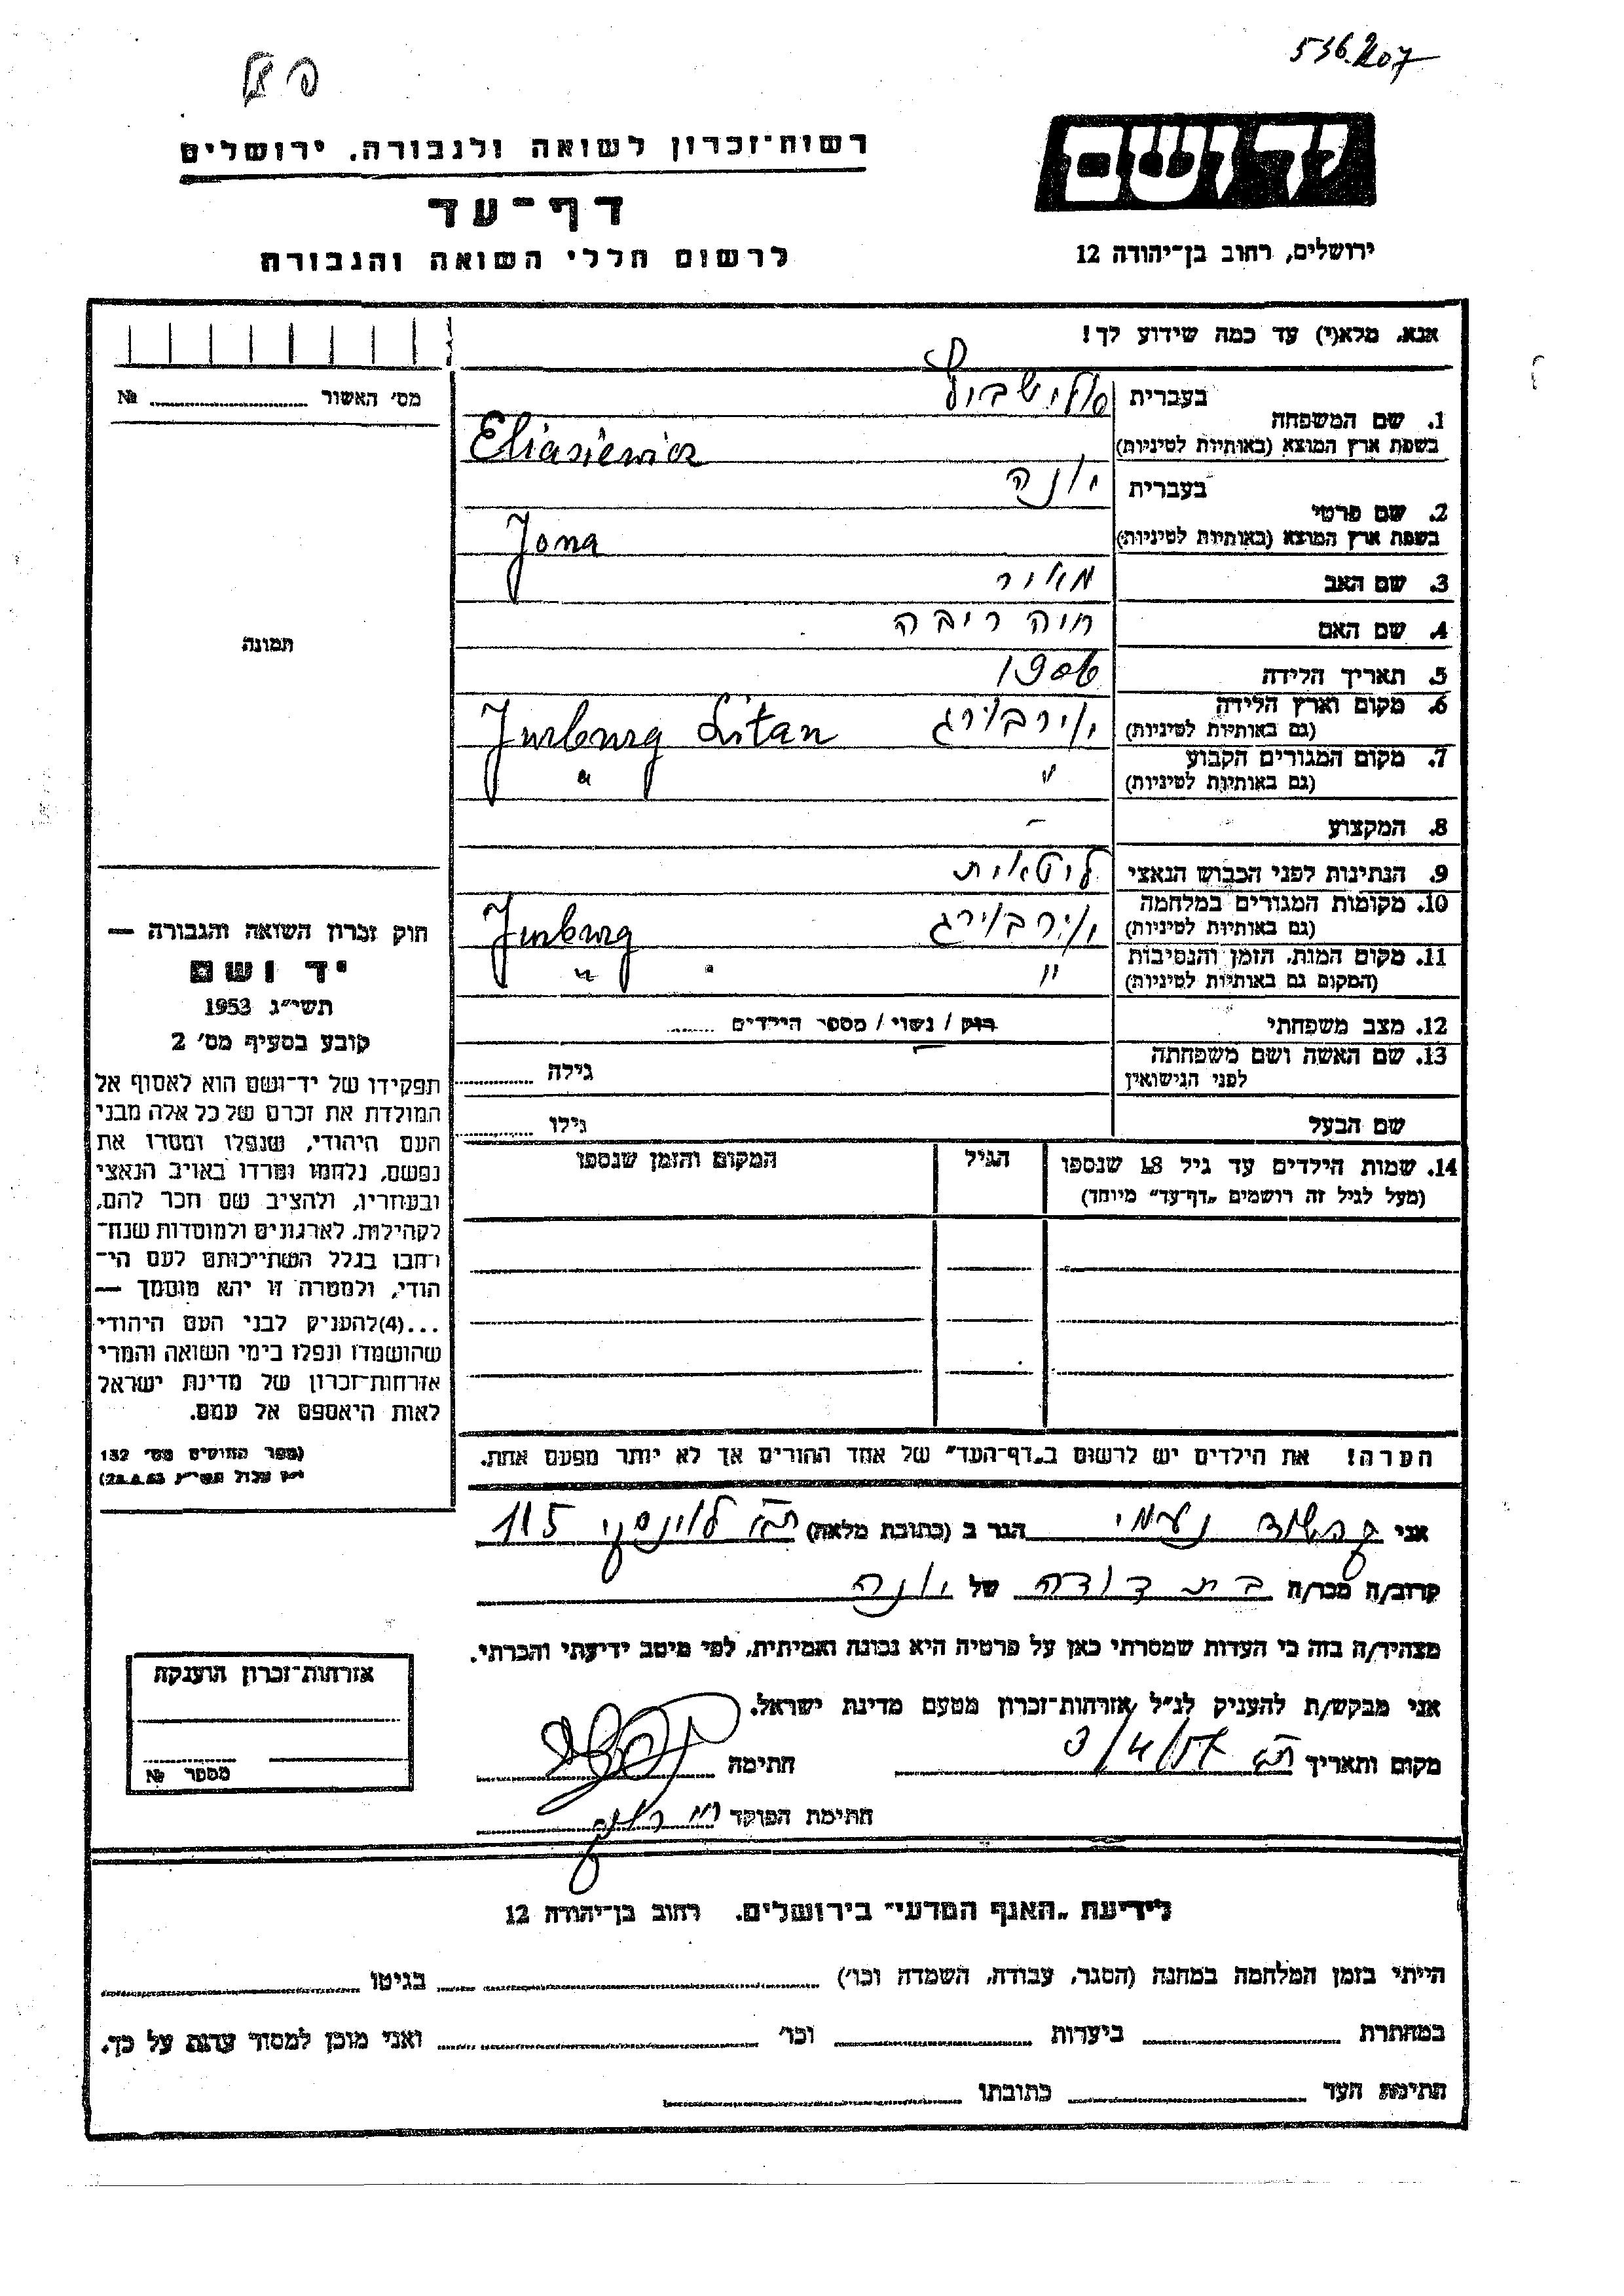 536.207
יד ושם
רשות־זכרון לשואה ולגבורה, ירושלים
דף־עד
לרשום חללי השואה והגבורה
ירושלים, רחוב בן־יהודה 12
אנא, מלא(י) עד כמה שידוע לך!
מס׳ האשור № 
1. שם המשפחה
בעברית
בשפת ארץ המוצא (באותיות לטיניות) Eliasiewicz
2. שם פרטי
בעברית יונה
בשפת ארץ המוצא (באותיות לטיניות) Jona
3. שם האב מאיר
4. שם האם חיה ריבה
5. תאריך הלידה 1906
6. מקום וארץ הלידה יורבורג Jurburg Litan
(גם באותיות לטיניות)
7. מקום המגורים הקבוע " "
(גם באותיות לטיניות)
8. המקצוע -
9. הנתינות לפני הכבוש הנאצי ליטאית
10. מקומות המגורים במלחמה יורבורג Jurburg
(גם באותיות לטיניות)
11. מקום המות, הזמן והנסיבות " "
(המקום גם באותיות לטיניות)
12. מצב משפחתי רוק / נשוי / מספר הילדים
13. שם האשה ושם משפחתה גילה
לפני הנישואין
שם הבעל גילו
14. שמות הילדים עד גיל 18 שנספו הגיל המקום והזמן שנספו
(מעל לגיל זה רושמים „דף־עד״ מיוחד)
הערה! את הילדים יש לרשום ב„דף־העד״ של אחד ההורים אך לא יותר מפעם אחת.
תמונה
חוק זכרון השואה והגבורה —
יד ושם
תשי״ג 1953
קובע בסעיף מס׳ 2
תפקידו של יד־ושם הוא לאסוף אל
המולדת את זכרם של כל אלה מבני
העם היהודי, שנפלו ומסרו את
נפשם, נלחמו ומרדו באויב הנאצי
ובעוזריו, ולהציב שם וזכר להם,
לקהילות, לארגונים ולמוסדות שנח־
רבו בגלל השתייכותם לעם הי־
הודי, ולמטרה זו יהא מוסמך —
...(4)להעניק לבני העם היהודי
שהושמדו ונפלו בימי השואה והמרי
אזרחות־זכרון של מדינת ישראל
לאות היאספם אל עמם.
(ספר החוקים מס׳ 132
אני נעמי הגר ב (כתובת מלאה) ת"א לוינסקי 115
קרוב/ה מכר/ה בת דודה של יונה
מצהיר/ה בזה כי העדות שמסרתי כאן על פרטיה היא נכונה ואמיתית, לפי מיטב ידיעתי והכרתי.
אני מבקש/ת להעניק לנ״ל אזרחות־זכרון מטעם מדינת ישראל.
מקום ותאריך ת"א 3/4/57 חתימה
חתימת הפוקד
אזרחות־זכרון הוענקה
מספר №
לידיעת „האגף המדעי״ בירושלים, רחוב בן־יהודה 12
הייתי בזמן המלחמה במחנה (הסגר, עבודה, השמדה וכו׳) בגיטו
במחתרת ביערות וכו׳ ואני מוכן למסור עדות על כך.
חתימת העד כתובתו